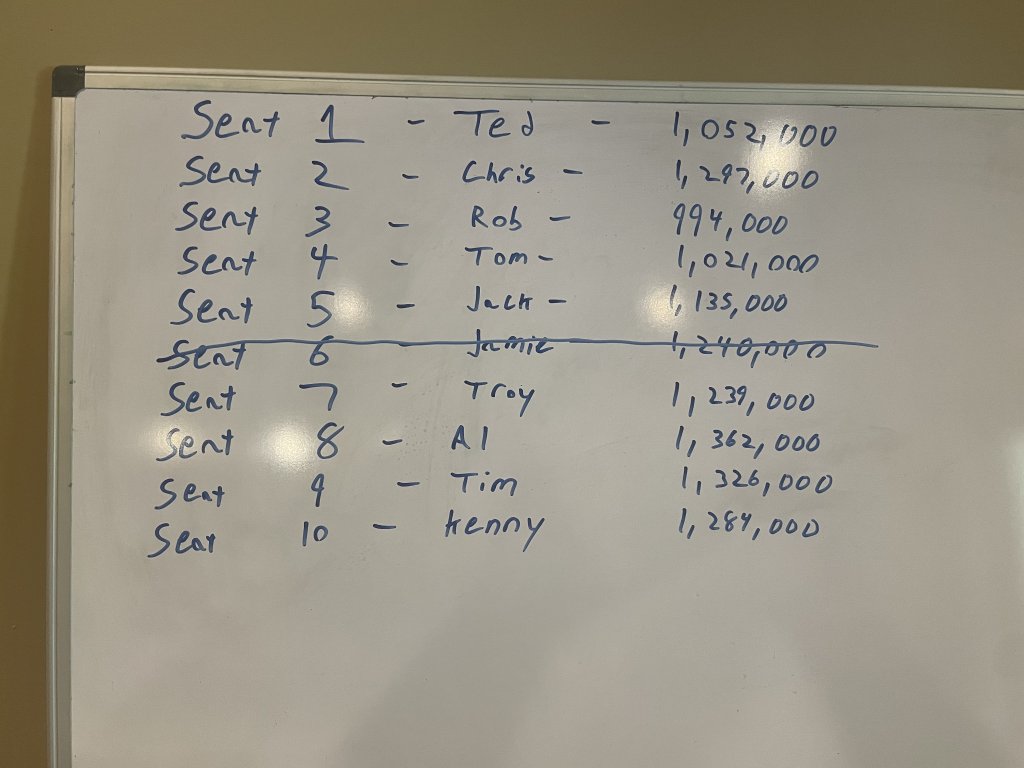 Seat 1 - Ted - 1,052,000
Seat 2 - Chris - 1,297,000
Seat 3 - Rob - 994,000
Seat 4 - Tom - 1,021,000
Seat 5 - Jack - 1,135,000
Seat 6 - Jamie 1,240,000
Seat 7 - Troy 1,239,000
Seat 8 - Al 1,362,000
Seat 9 - Tim 1,326,000
Seat 10 - Kenny 1,284,000